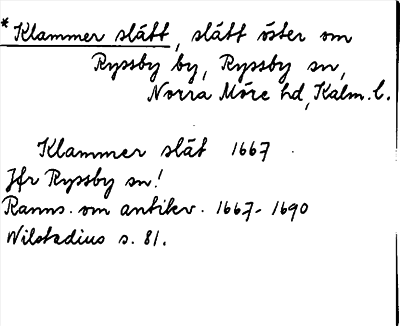 * Klammer slätt, slätt öster om
Ryssby by, Ryssby sn,
Norra Möre hd, Kalm. l.
Klammer slät 1667
Jfr Ryssby sn!
Ranns. om antikv. 1667-1690
Wilstadius s. 81.